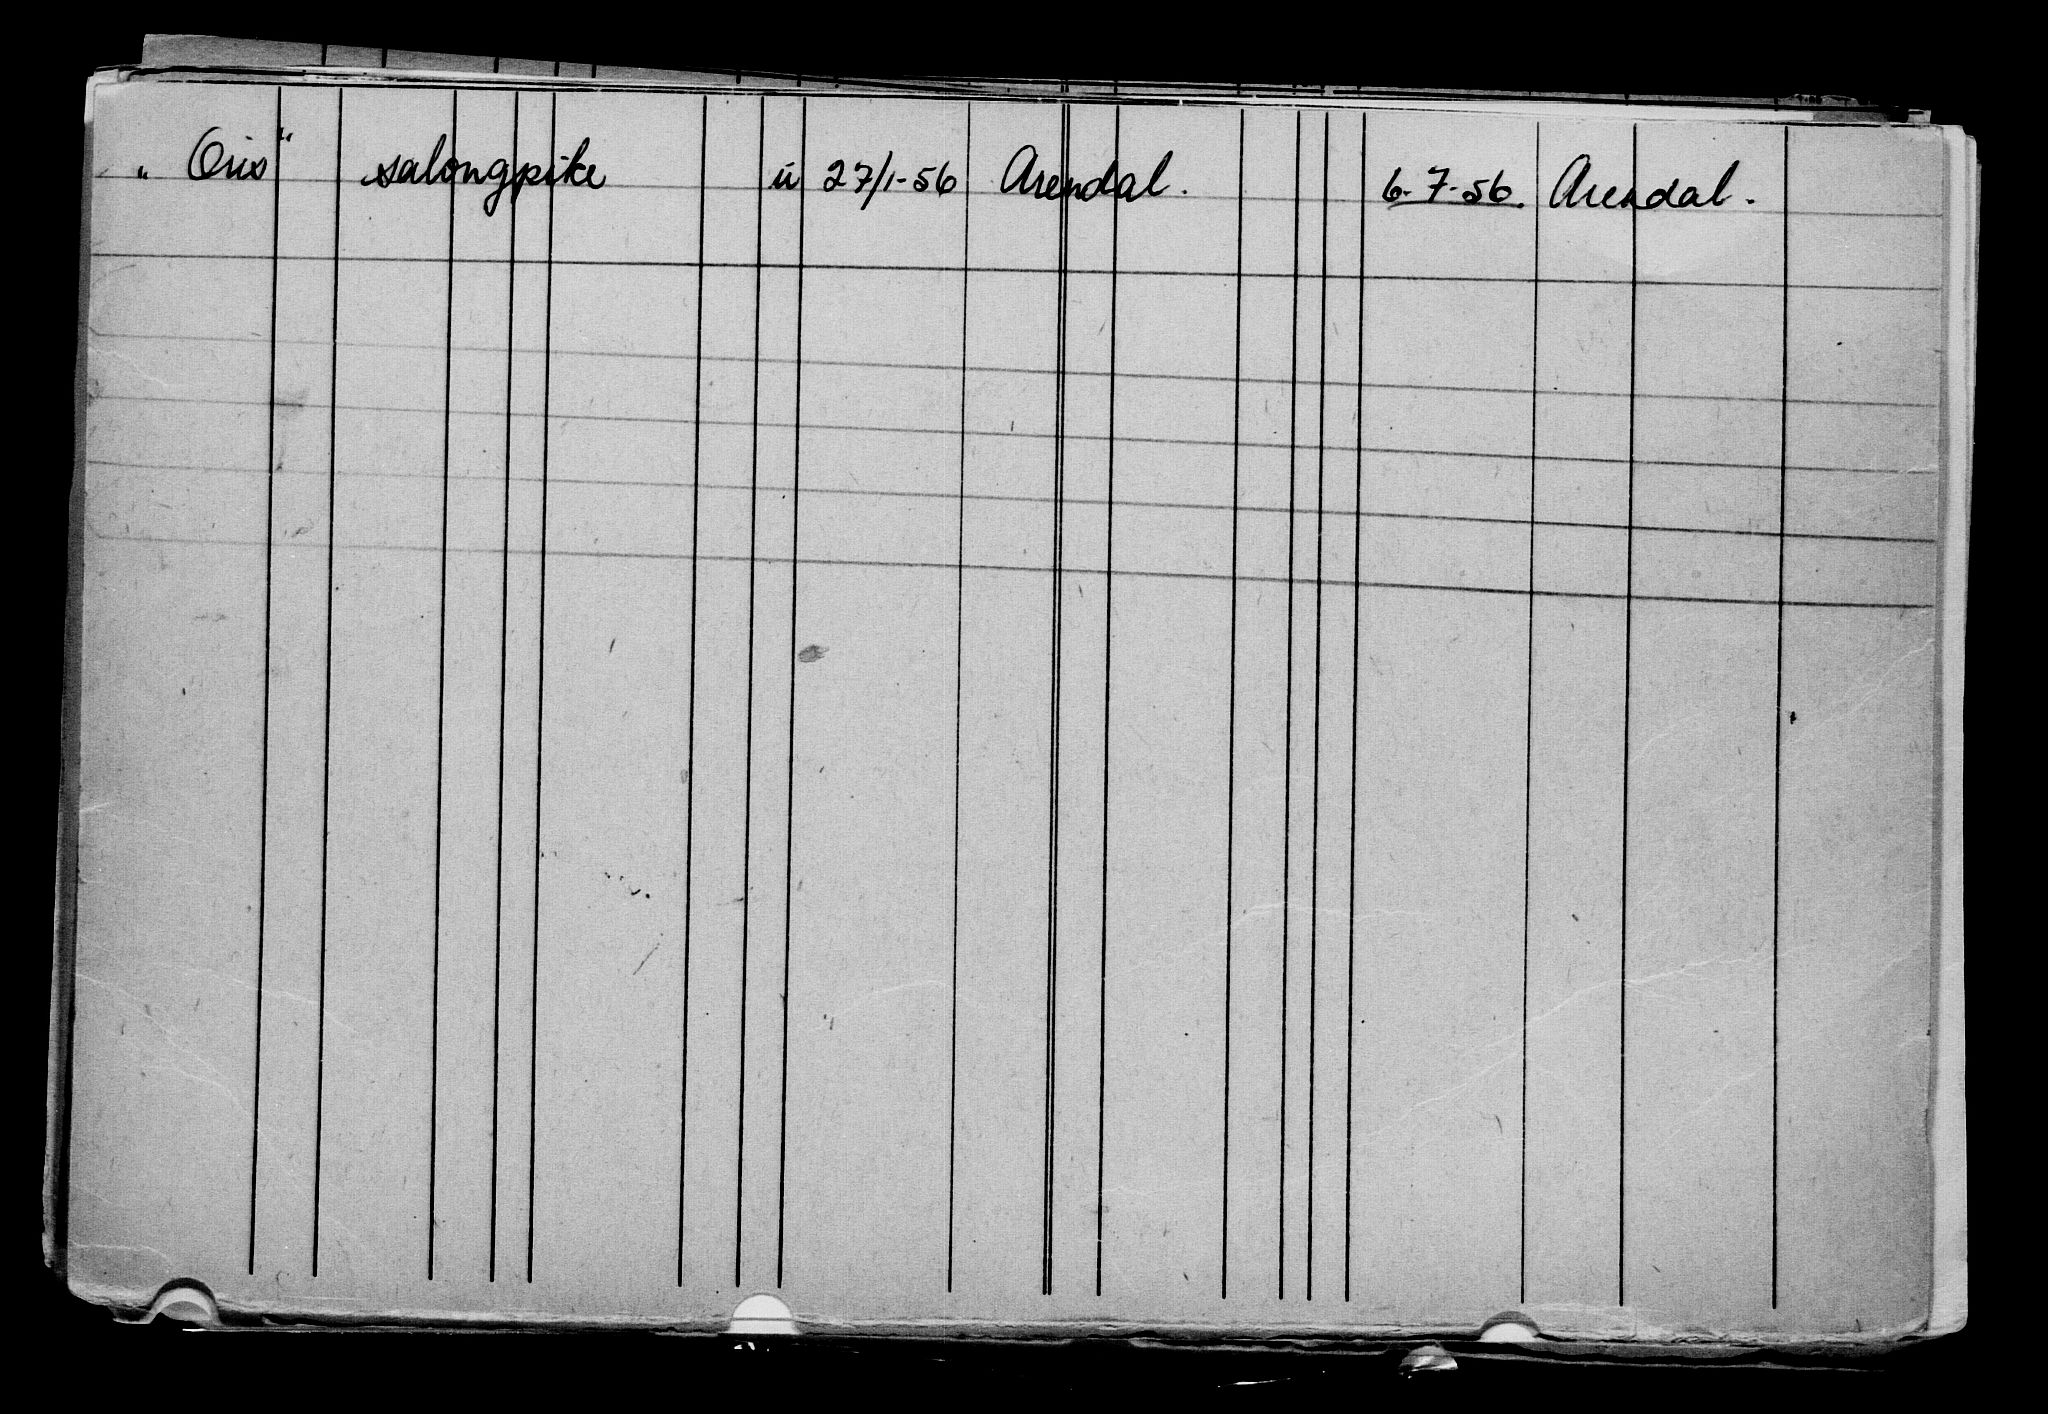 „Oris“ salongpike u 27/1-56 Arendal. 6-7-56. Arendal.